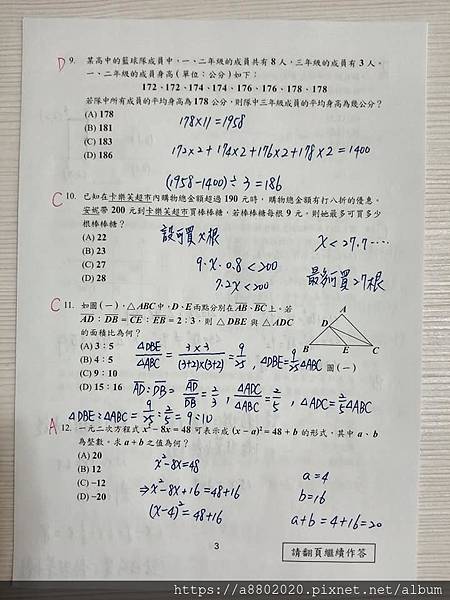 D 9. 某高中的籃球隊成員中，一、二年級的成員共有 8 人，三年級的成員有 3 人。
一、二年級的成員身高（單位：公分）如下：
172、172、174、174、176、176、178、178
若隊中所有成員的平均身高為 178 公分，則隊中三年級成員的平均身高為幾公分？
(A) 178
178×11=1958
(B) 181
(C) 183
172×2+174×2+176×2+178×2=1400
(D) 186
(1958-1400)÷3=186
C 10. 已知在卡樂芙超市內購物總金額超過 190 元時，購物總金額有打八折的優惠。
安妮帶 200 元到卡樂芙超市買棒棒糖，若棒棒糖每根 9 元，則她最多可買多少
根棒棒糖？
(A) 22
設可買x根
x<27.7....
(B) 23
(C) 27
9·x·0.8<200
最多可買27根
(D) 28
7.2x<200
C 11. 如圖(一)，△ABC中，D、E兩點分別在AB、BC上。若
AD：DB=CE：EB=2：3，則△DBE與△ADC
的面積比為何？
(A) 3：5
(B) 4：5
(C) 9：10
(D) 15：16
△DBE/△ABC = 3×3/(3+2)×(3+2) = 9/25 , △DBE=9/25△ABC
A
D
B
E
C
圖(一)
AD:DB= AD/DB = 2/3 , △ADC/△ABC = 2/5 , △ADC=2/5△ABC
△DBE:△ABC= 9/25:2/5=9:10
A 12. 一元二次方程式 x²-8x=48 可表示成 (x-a)²=48+b 的形式，其中 a、b
為整數。求 a+b 之值為何？
(A) 20
(B) 12
x²-8x=48
a=4
(C) -12
⇒x²-8x+16=48+16
b=16
(D) -20
(x-4)²=48+16
a+b=4+16=20
3
請翻頁繼續作答
https://a8802020.pixnet.net/album